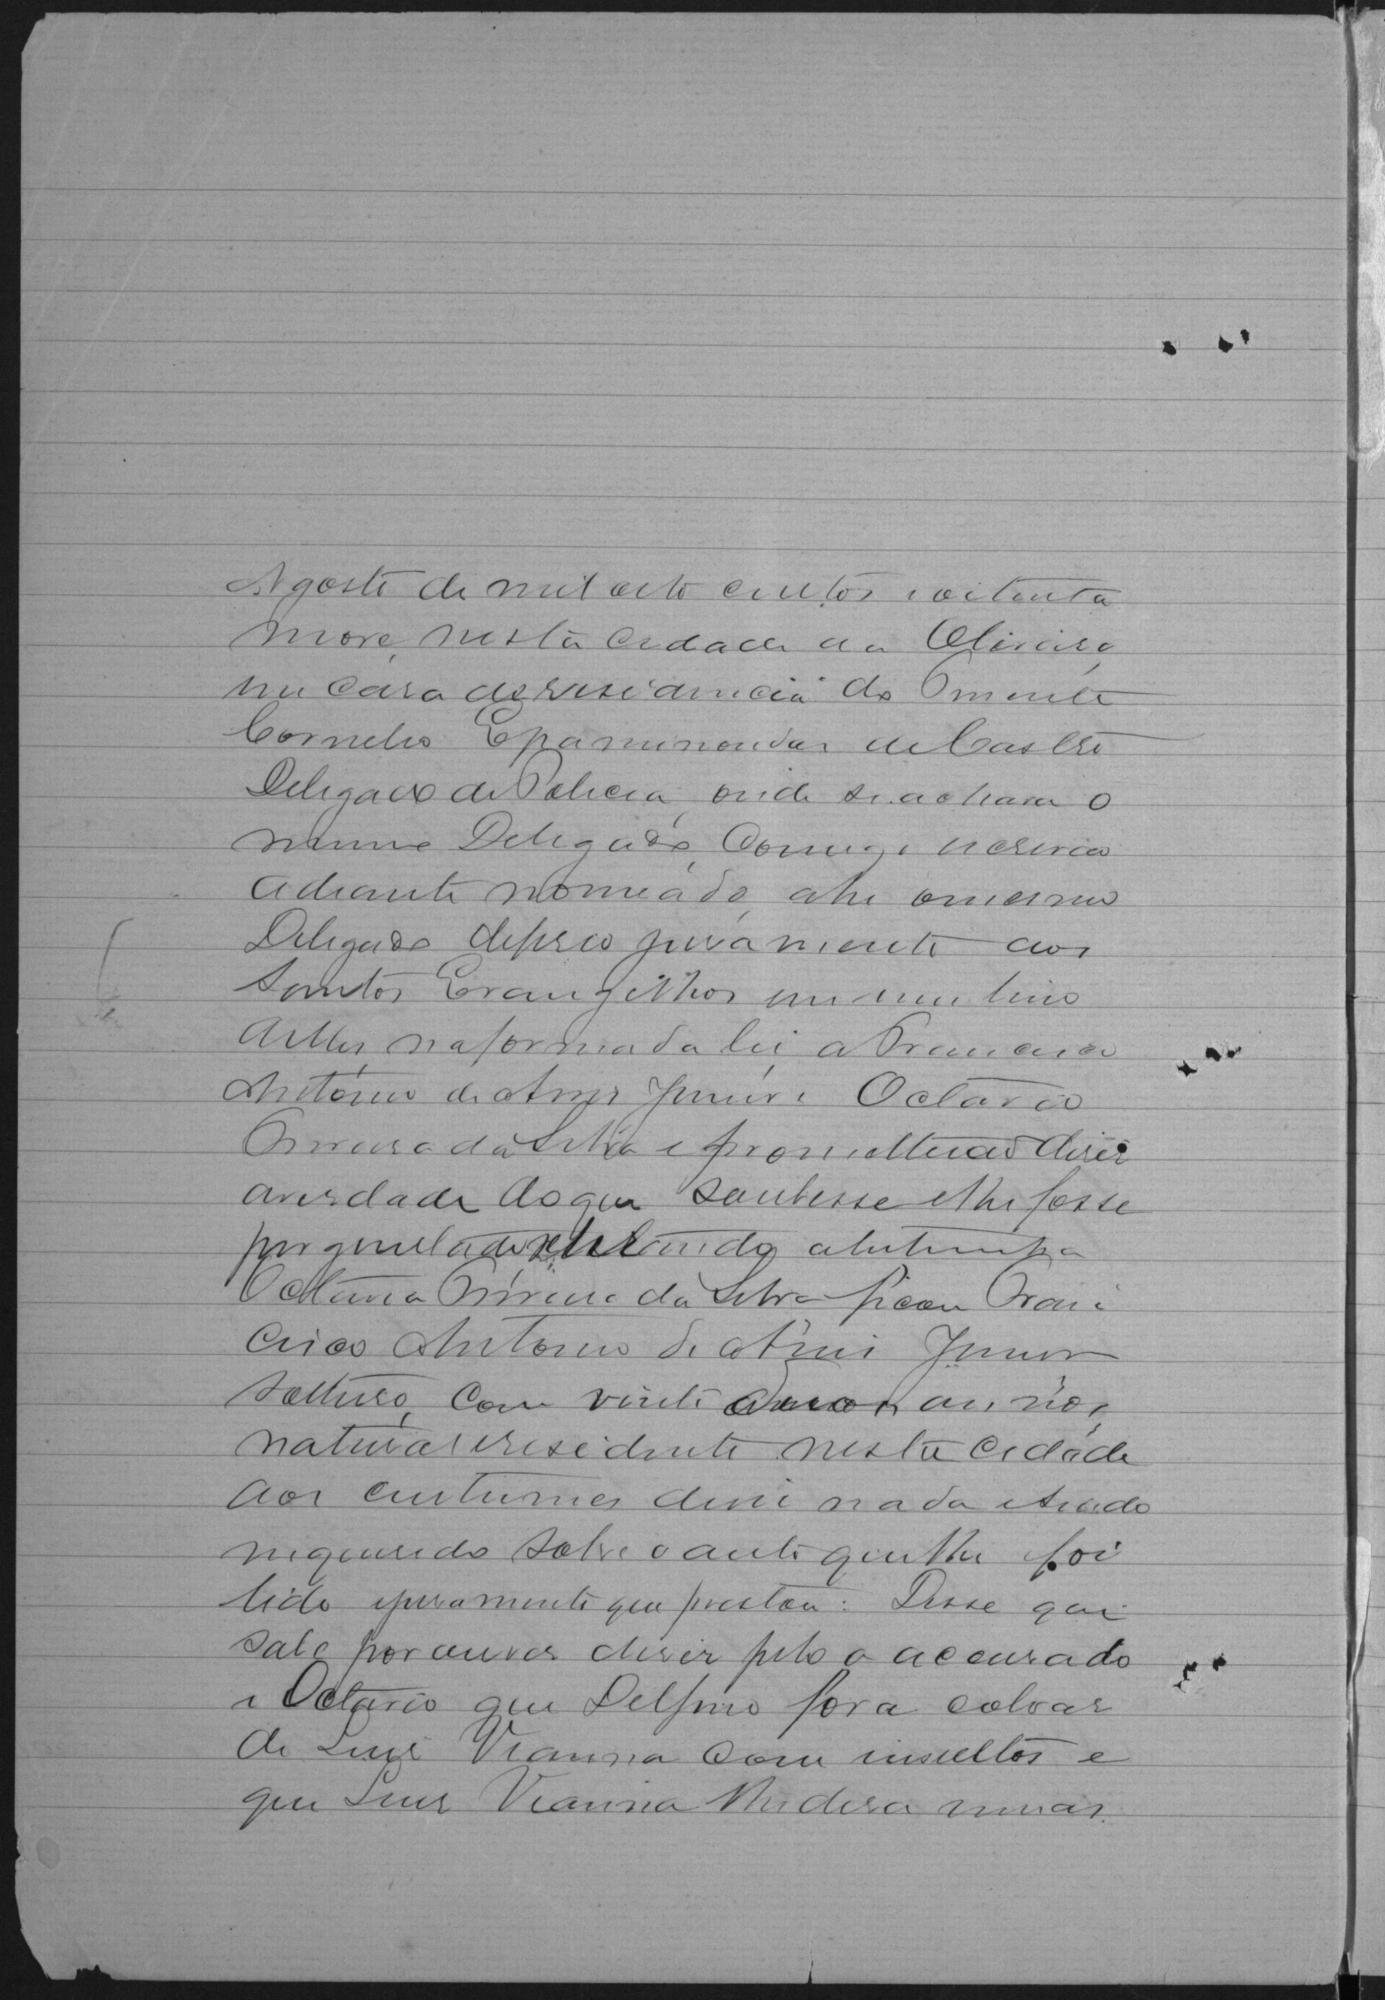 Agosto de mil oito centos e oitenta
nove, nesta cidade da Oliveira,
na casa de residencia do Tenente
Cornelio Epaminondas de Castro
Delegado de Policia, onde se achava o
mesmo Delegado, Comigo escrivão
adiante nomeado, ahi o mesmo
Delegado deferio juramento aos
Santos Evangelhos em um livro
delles, na forma da lei, a Francisco
Antonio de Assis Junior e Octavio
Moreira da Silva e prometterão diser
averdade do que soubesse e lhe fosse
perguntado, retirando a testemunha
Octavio Moreira da Silva ficou Fran
cisco Antonio de Assis Junior
solteiro, com vinte annos,
natural e residente nesta cidade
aos custumes disse nada e sendo
inquerido sobre o auto que lhe foi
lido e juramento que prestou: Disse que
sabe por ouvir diser pelo o accusado
e Octavio que Delfino fora cobrar
de Luis Vianna com insultos e
que Luis Vianna lhe dera umas